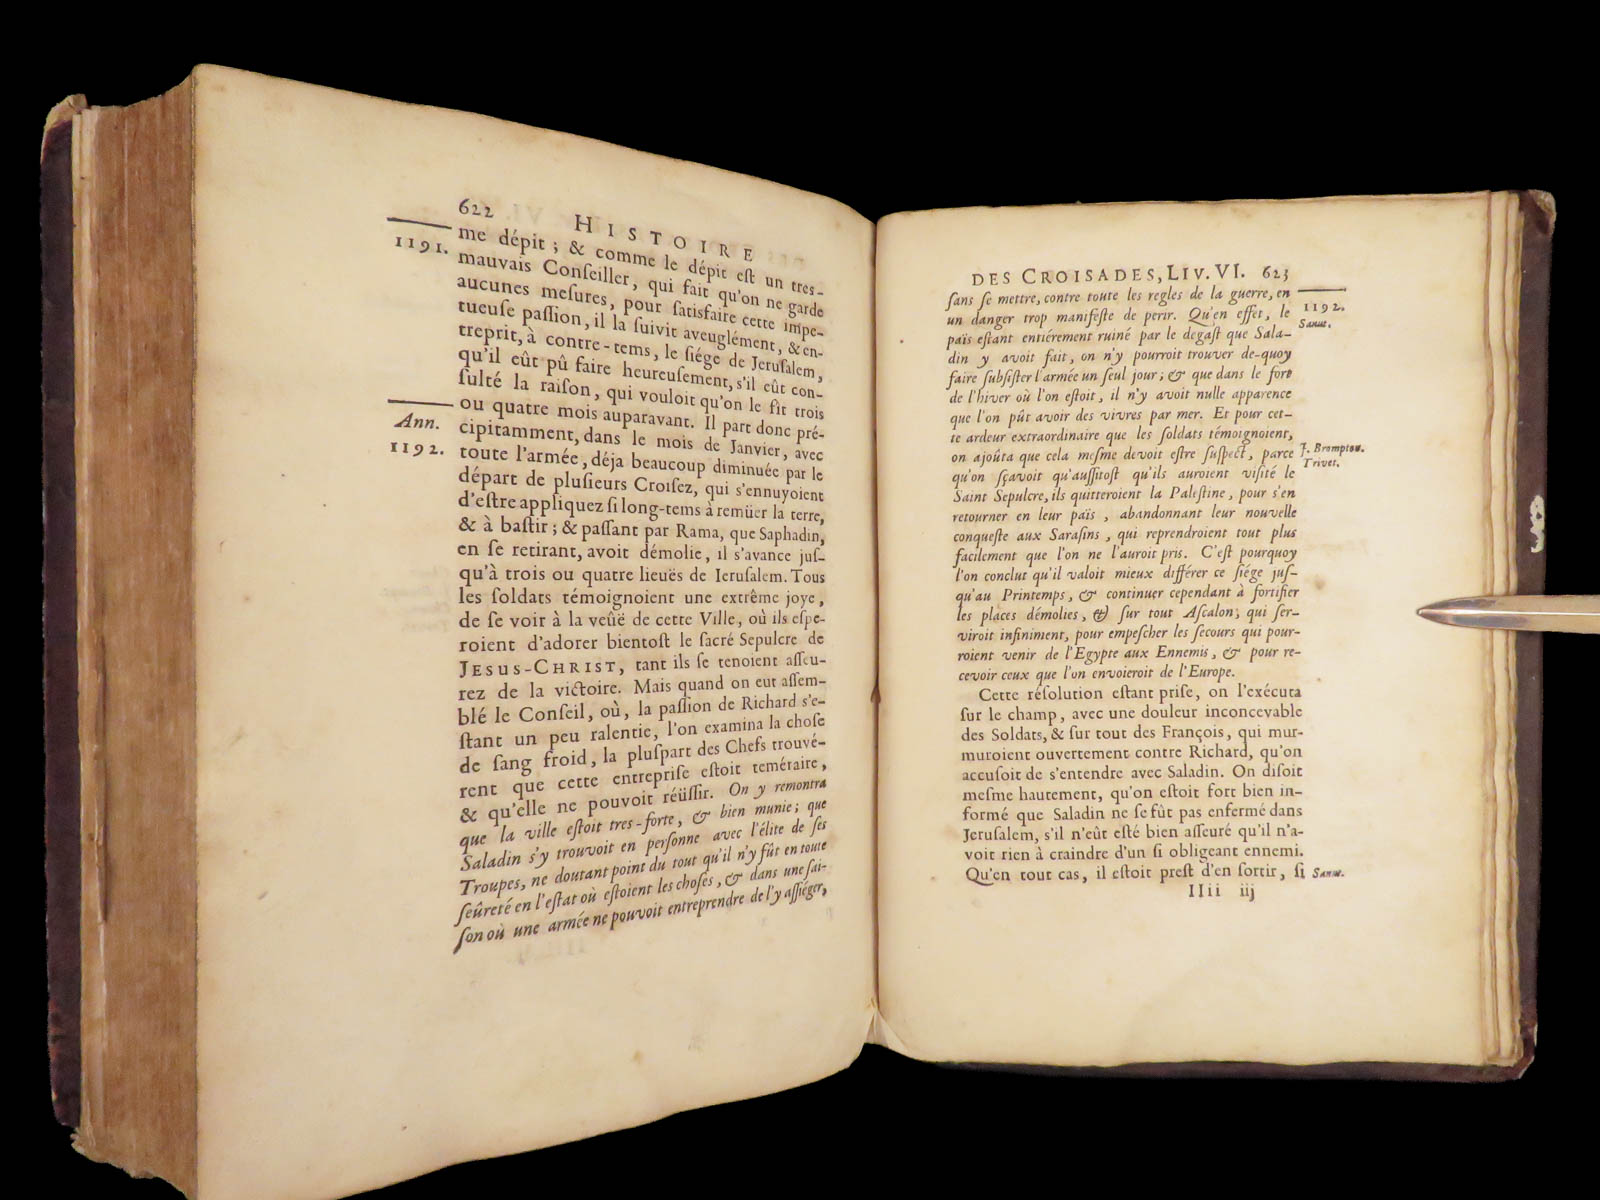 622 HISTOIRE
1191.
me dépit ; & comme le dépit eſt un tres-
mauvais Conſeiller, qui fait qu'on ne garde
aucunes meſures, pour ſatisfaire cette impe-
tueuſe paſſion, il la ſuivit aveuglément, & en-
treprit, à contre-tems, le ſiége de Jeruſalem,
qu'il eût pû faire heureuſement, s'il eût con-
ſulté la raiſon, qui vouloit qu'on le fit trois
ou quatre mois auparavant. Il part donc pré-
Ann.
1192.
cipitamment, dans le mois de Janvier, avec
toute l'armée, déja beaucoup diminuée par le
départ de pluſieurs Croiſez, qui s'ennuyoient
d'eſtre appliquez ſi long-tems à remüer la terre,
& à baſtir ; & paſſant par Rama, que Saphadin,
en ſe retirant, avoit démolie, il s'avance juſ-
qu'à trois ou quatre lieuës de Ieruſalem. Tous
les ſoldats témoignoient une extrême joye,
de ſe voir à la veûë de cette Ville, où ils eſpe-
roient d'adorer bientoſt le ſacré Sepulcre de
JESUS-CHRIST, tant ils ſe tenoient aſſeu-
rez de la victoire. Mais quand on eut aſſem-
blé le Conſeil, où, la paſſion de Richard s'e-
ſtant un peu ralentie, l'on examina la choſe
de ſang froid, la pluſpart des Chefs trouvé-
rent que cette entrepriſe eſtoit teméraire,
& qu'elle ne pouvoit réüſſir. On y remontra
que la ville eſtoit tres-forte, & bien munie ; que
Saladin s'y trouvoit en perſonne avec l'élite de ſes
Troupes, ne doutant point du tout qu'il n'y fût en toute
ſeûreté en l'eſtat où eſtoient les choſes, & dans une ſai-
ſon où une armée ne pouvoit entreprendre de l'y aſſiéger,
DES CROISADES, LIV. VI. 623
ſans ſe mettre, contre toute les regles de la guerre, en
1192.
un danger trop manifeſte de perir. Qu'en effet, le
Sanut.
païs eſtant entiérement ruiné par le degaſt que Sala-
din y avoit fait, on n'y pourroit trouver de-quoy
faire ſubſiſter l'armée un ſeul jour ; & que dans le fort
de l'hiver où l'on eſtoit, il n'y avoit nulle apparence
que l'on pût avoir des vivres par mer. Et pour cet-
te ardeur extraordinaire que les ſoldats témoignoient,
on ajoûta que cela meſme devoit eſtre ſuſpect, parce
J. Brompton.
Trivet.
qu'on ſçavoit qu'auſſitoſt qu'ils auroient viſité le
Saint Sepulcre, ils quitteroient la Paleſtine, pour s'en
retourner en leur païs, abandonnant leur nouvelle
conqueſte aux Saraſins, qui reprendroient tout plus
facilement que l'on ne l'auroit pris. C'eſt pourquoy
l'on conclut qu'il valoit mieux différer ce ſiége juſ-
qu'au Printemps, & continuer cependant à fortifier
les places démolies, & ſur tout Aſcalon, qui ſer-
viroit infiniment, pour empeſcher les ſecours qui pour-
roient venir de l'Egypte aux Ennemis, & pour re-
cevoir ceux que l'on envoieroit de l'Europe.
Cette réſolution eſtant priſe, on l'exécuta
ſur le champ, avec une douleur inconcevable
des Soldats, & ſur tout des François, qui mur-
muroient ouvertement contre Richard, qu'on
accuſoit de s'entendre avec Saladin. On diſoit
meſme hautement, qu'on eſtoit fort bien in-
formé que Saladin ne ſe fût pas enfermé dans
Jeruſalem, s'il n'eût eſté bien aſſeuré qu'il n'a-
voit rien à craindre d'un ſi obligeant ennemi.
Qu'en tout cas, il eſtoit preſt d'en ſortir, ſi
Sanut.
IIii iij